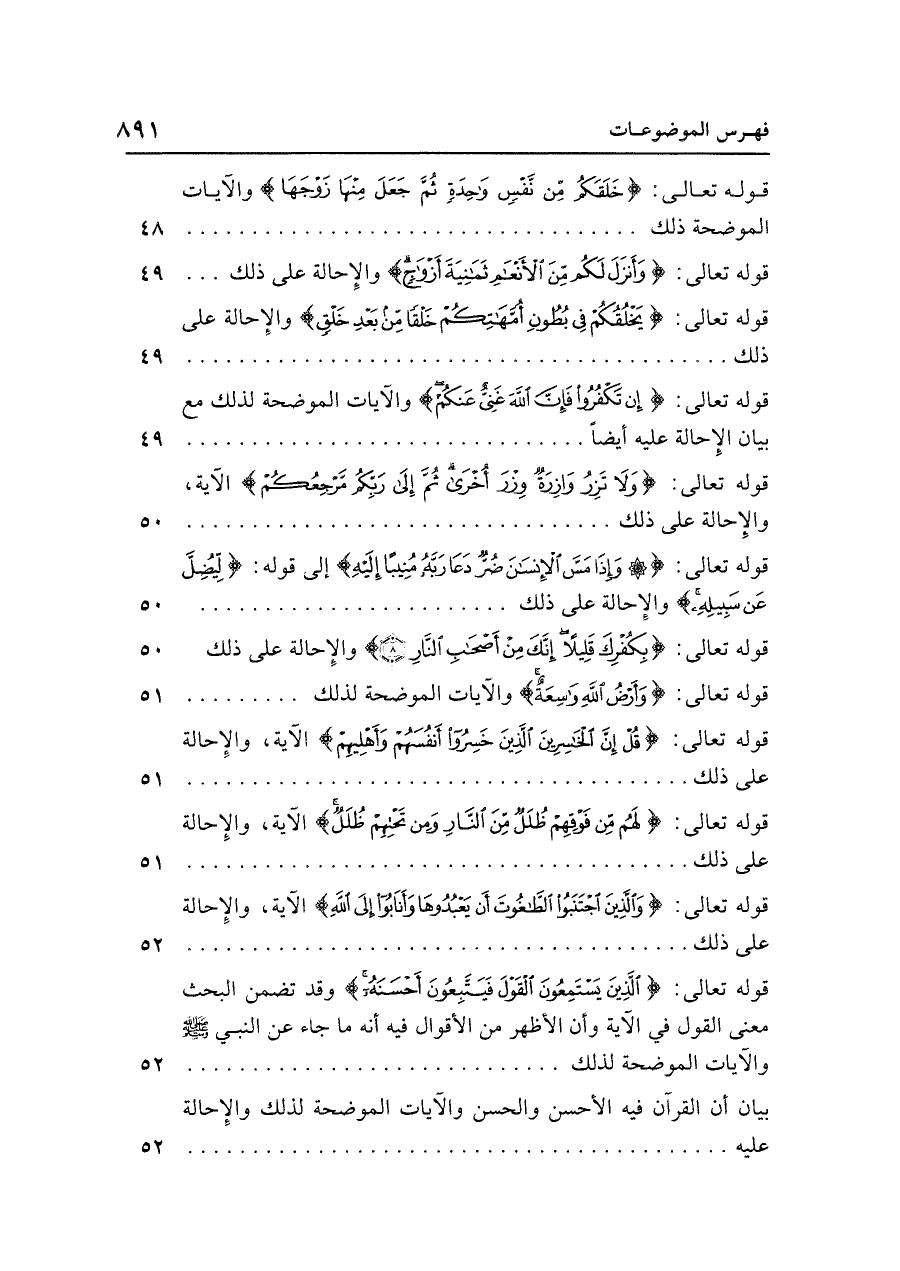 فهرس الموضوعات ٨٩١
قوله تعالى: ﴿ خَلَقَكُم مِّن نَّفْسٍ وَٰحِدَةٍ ثُمَّ جَعَلَ مِنْهَا زَوْجَهَا ﴾ والآيات
الموضحة ذلك . . . . . . . . . . . . . . . . . . . . . . . . . . . . . . . . . . . ٤٨
قوله تعالى: ﴿ وَأَنزَلَ لَكُم مِّنَ ٱلْأَنْعَٰمِ ثَمَٰنِيَةَ أَزْوَٰجٍۚ ﴾ والإحالة على ذلك . . . ٤٩
قوله تعالى: ﴿ يَخْلُقُكُمْ فِى بُطُونِ أُمَّهَٰتِكُمْ خَلْقًا مِّنۢ بَعْدِ خَلْقٍ ﴾ والإحالة على
ذلك . . . . . . . . . . . . . . . . . . . . . . . . . . . . . . . . . . . . . . . . . . ٤٩
قوله تعالى: ﴿ إِن تَكْفُرُوا۟ فَإِنَّ ٱللَّهَ غَنِىٌّ عَنكُمْۖ ﴾ والآيات الموضحة لذلك مع
بيان الإحالة عليه أيضاً . . . . . . . . . . . . . . . . . . . . . . . . . . . . . . . ٤٩
قوله تعالى: ﴿ وَلَا تَزِرُ وَازِرَةٌ وِزْرَ أُخْرَىٰۗ ثُمَّ إِلَىٰ رَبِّكُم مَّرْجِعُكُمْ ﴾ الآية،
والإحالة على ذلك . . . . . . . . . . . . . . . . . . . . . . . . . . . . . . . . . ٥٠
قوله تعالى: ﴿ ۞ وَإِذَا مَسَّ ٱلْإِنسَٰنَ ضُرٌّ دَعَا رَبَّهُۥ مُنِيبًا إِلَيْهِ ﴾ إلى قوله: ﴿ لِّيُضِلَّ
عَن سَبِيلِهِۦۚ ﴾ والإحالة على ذلك . . . . . . . . . . . . . . . . . . . . . . . . ٥٠
قوله تعالى: ﴿ بِكُفْرِكَ قَلِيلًاۖ إِنَّكَ مِنْ أَصْحَٰبِ ٱلنَّارِ ٨ ﴾ والإحالة على ذلك ٥٠
قوله تعالى: ﴿ وَأَرْضُ ٱللَّهِ وَٰسِعَةٌۗ ﴾ والآيات الموضحة لذلك . . . . . . . . . ٥١
قوله تعالى: ﴿ قُلْ إِنَّ ٱلْخَٰسِرِينَ ٱلَّذِينَ خَسِرُوٓا۟ أَنفُسَهُمْ وَأَهْلِيهِمْ ﴾ الآية، والإحالة
على ذلك . . . . . . . . . . . . . . . . . . . . . . . . . . . . . . . . . . . . . . . ٥١
قوله تعالى: ﴿ لَهُم مِّن فَوْقِهِمْ ظُلَلٌ مِّنَ ٱلنَّارِ وَمِن تَحْتِهِمْ ظُلَلٌۚ ﴾ الآية، والإحالة
على ذلك . . . . . . . . . . . . . . . . . . . . . . . . . . . . . . . . . . . . . . . ٥١
قوله تعالى: ﴿ وَٱلَّذِينَ ٱجْتَنَبُوا۟ ٱلطَّٰغُوتَ أَن يَعْبُدُوهَا وَأَنَابُوٓا۟ إِلَى ٱللَّهِ ﴾ الآية، والإحالة
على ذلك . . . . . . . . . . . . . . . . . . . . . . . . . . . . . . . . . . . . . . . ٥٢
قوله تعالى: ﴿ ٱلَّذِينَ يَسْتَمِعُونَ ٱلْقَوْلَ فَيَتَّبِعُونَ أَحْسَنَهُۥٓۚ ﴾ وقد تضمن البحث
معنى القول في الآية وأن الأظهر من الأقوال فيه أنه ما جاء عن النبي ﷺ
والآيات الموضحة لذلك . . . . . . . . . . . . . . . . . . . . . . . . . . . . . ٥٢
بيان أن القرآن فيه الأحسن والحسن والآيات الموضحة لذلك والإحالة
عليه . . . . . . . . . . . . . . . . . . . . . . . . . . . . . . . . . . . . . . . . . . ٥٢